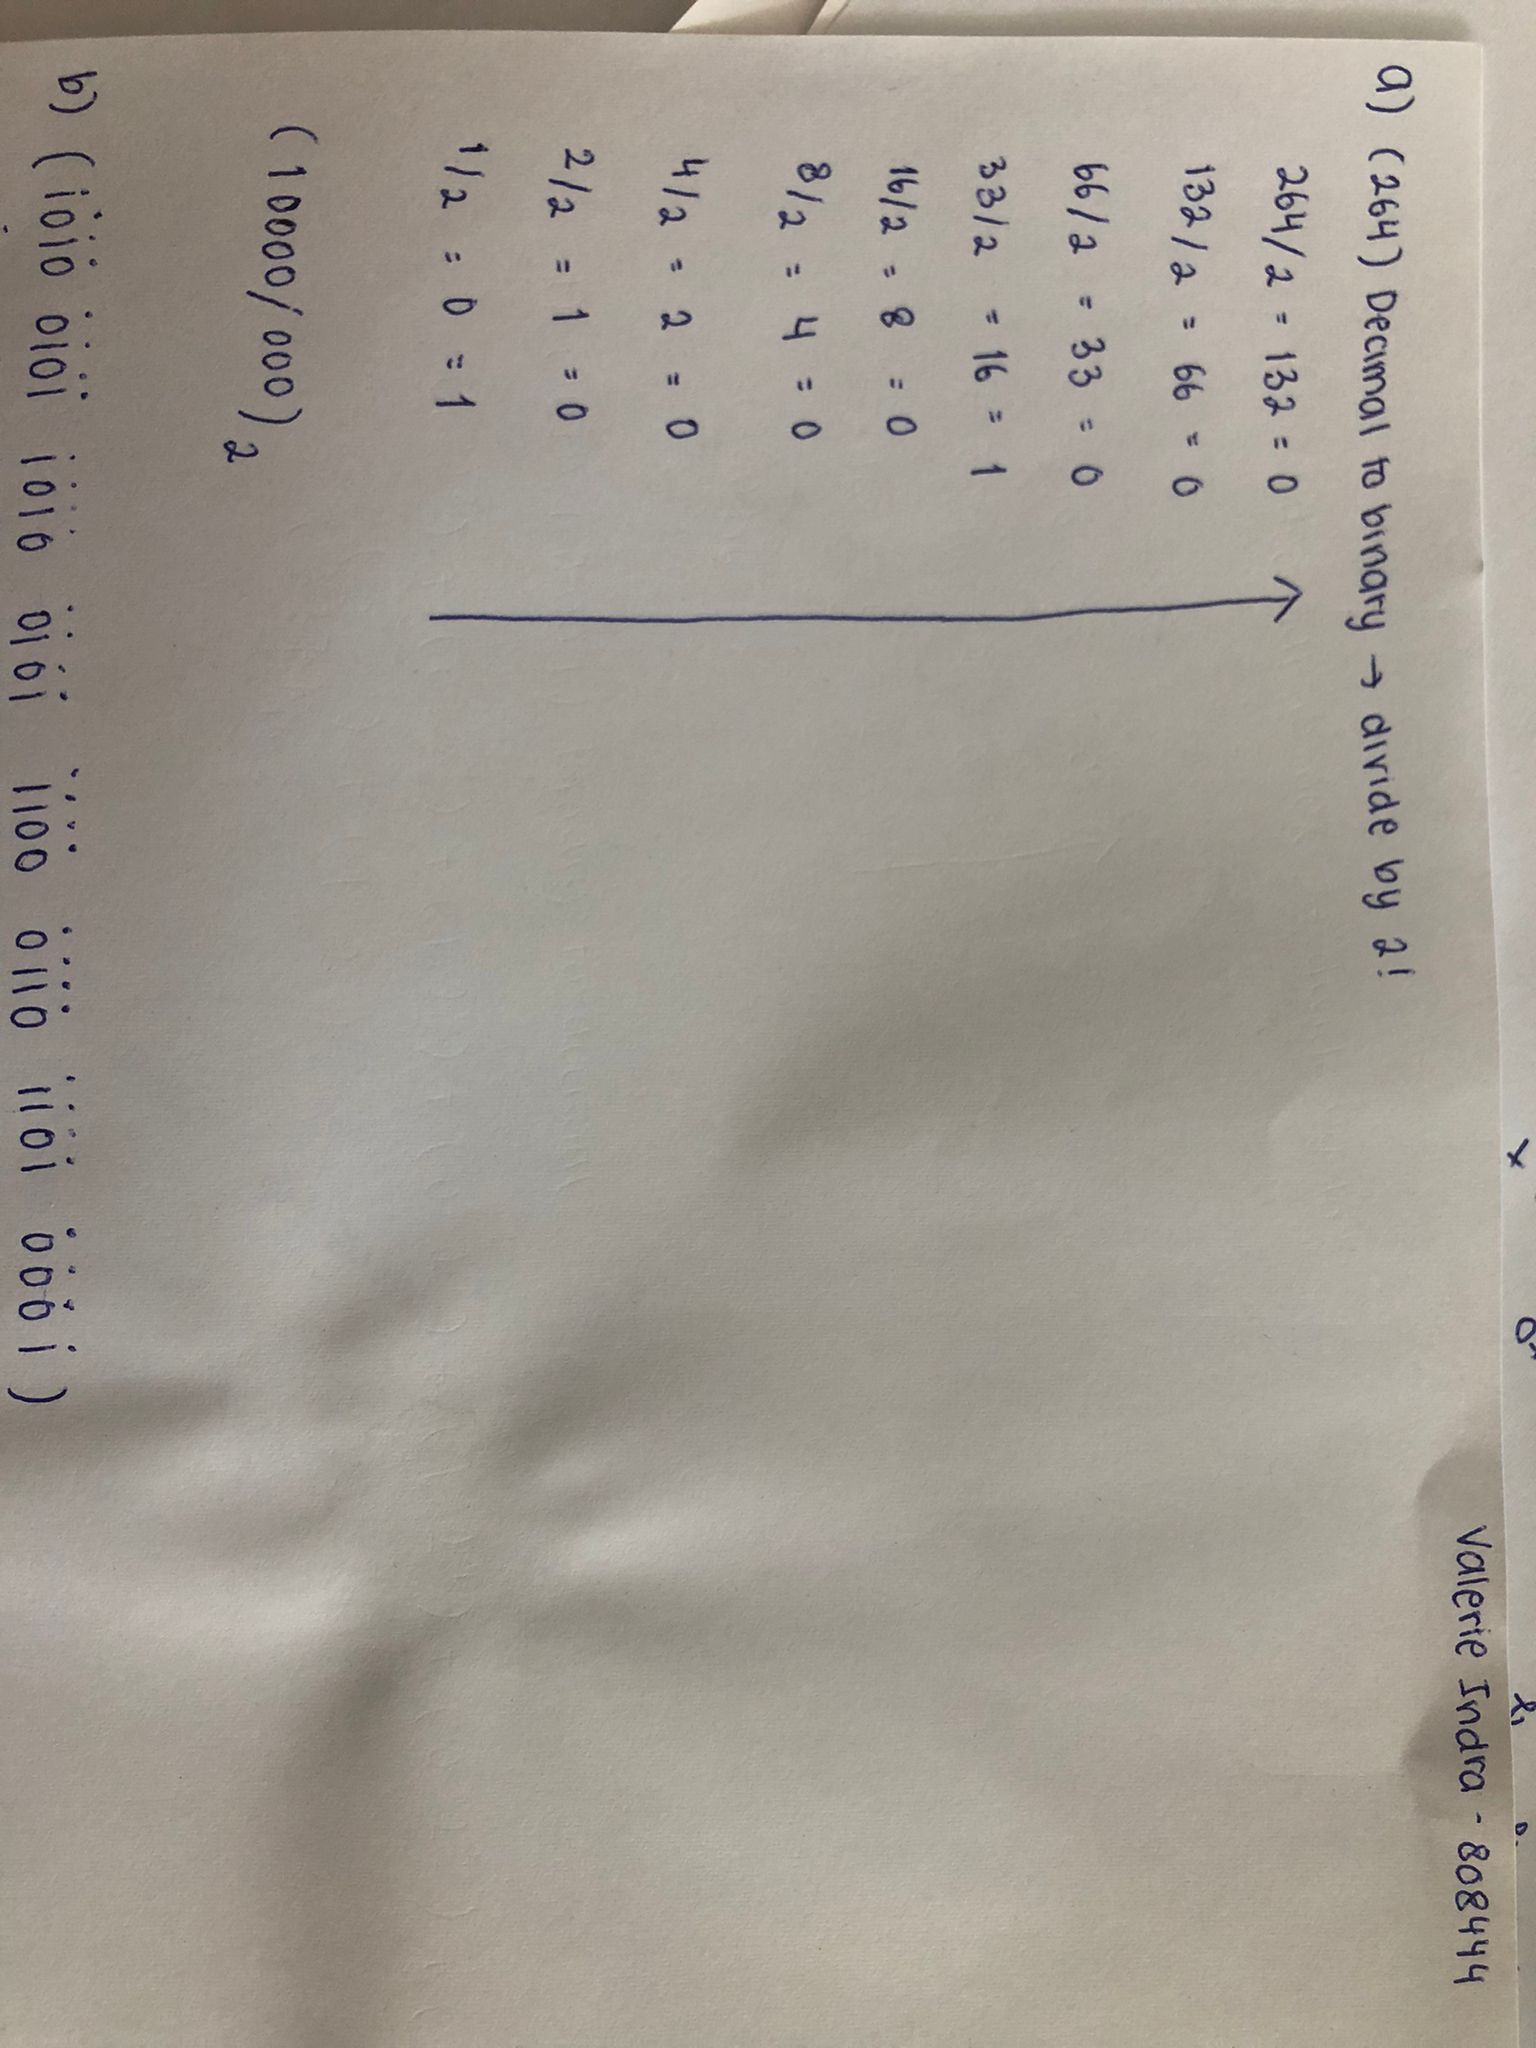 Valerie Indra - 808444
a) (264) Decimal to binary → divide by 2!
264/2 = 132 = 0
132/2 = 66 = 0
66/2 = 33 = 0
33/2 = 16 = 1
16/2 = 8 = 0
8/2 = 4 = 0
4/2 = 2 = 0
2/2 = 1 = 0
1/2 = 0 = 1
(10000/000)2
b) (1010 0101 1010 0101 1100 0110 1101 0001)